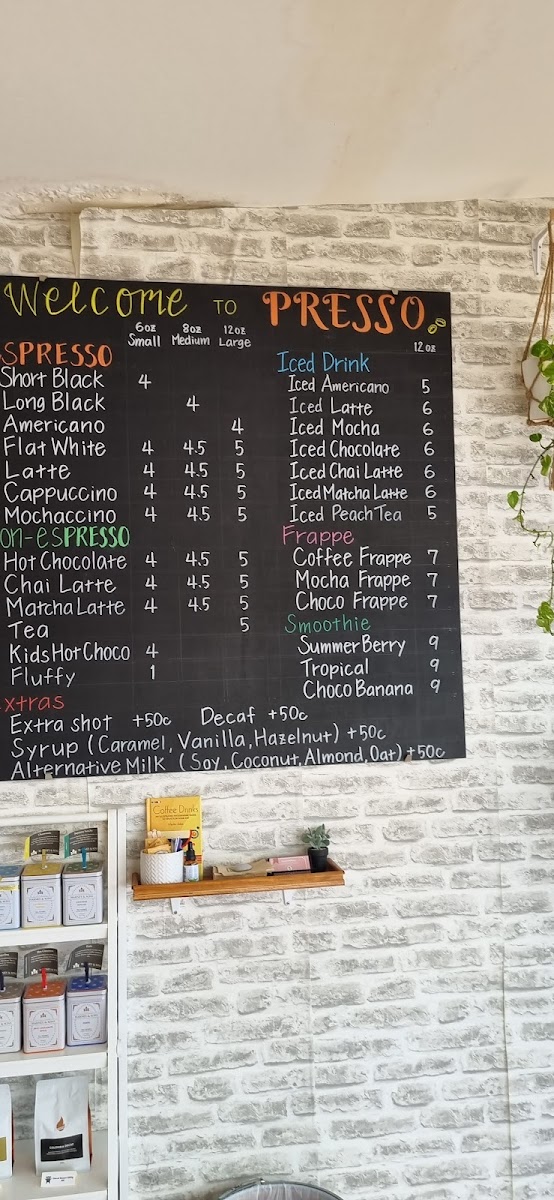 Welcome TO PRESSO
6oz Small 8oz Medium 12oz Large
SPRESSO
Short Black 4
Long Black 4
Americano 4
Flat White 4 4.5 5
Latte 4 4.5 5
Cappuccino 4 4.5 5
Mochaccino 4 4.5 5
on-esPRESSO
Hot Chocolate 4 4.5 5
Chai Latte 4 4.5 5
Matcha Latte 4 4.5 5
Tea 5
Kids Hot Choco 4
Fluffy 1
12 oz
Iced Drink
Iced Americano 5
Iced Latte 6
Iced Mocha 6
Iced Chocolate 6
Iced Chai Latte 6
Iced Matcha Latte 6
Iced Peach Tea 5
Frappe
Coffee Frappe 7
Mocha Frappe 7
Choco Frappe 7
Smoothie
Summer Berry 9
Tropical 9
Choco Banana 9
xtras
Extra shot +50c Decaf +50c
Syrup (Caramel, Vanilla, Hazelnut) +50c
Alternative Milk (Soy, Coconut, Almond, Oat) +50c
Coffee Drinks